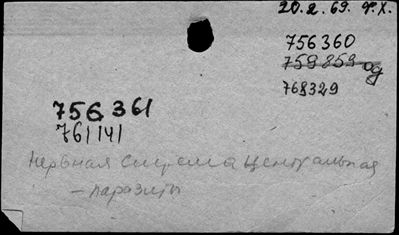 20.2.69. Ф.Х.
756360
759859
768329
756361
761141
Нервная система центральная
– паразиты